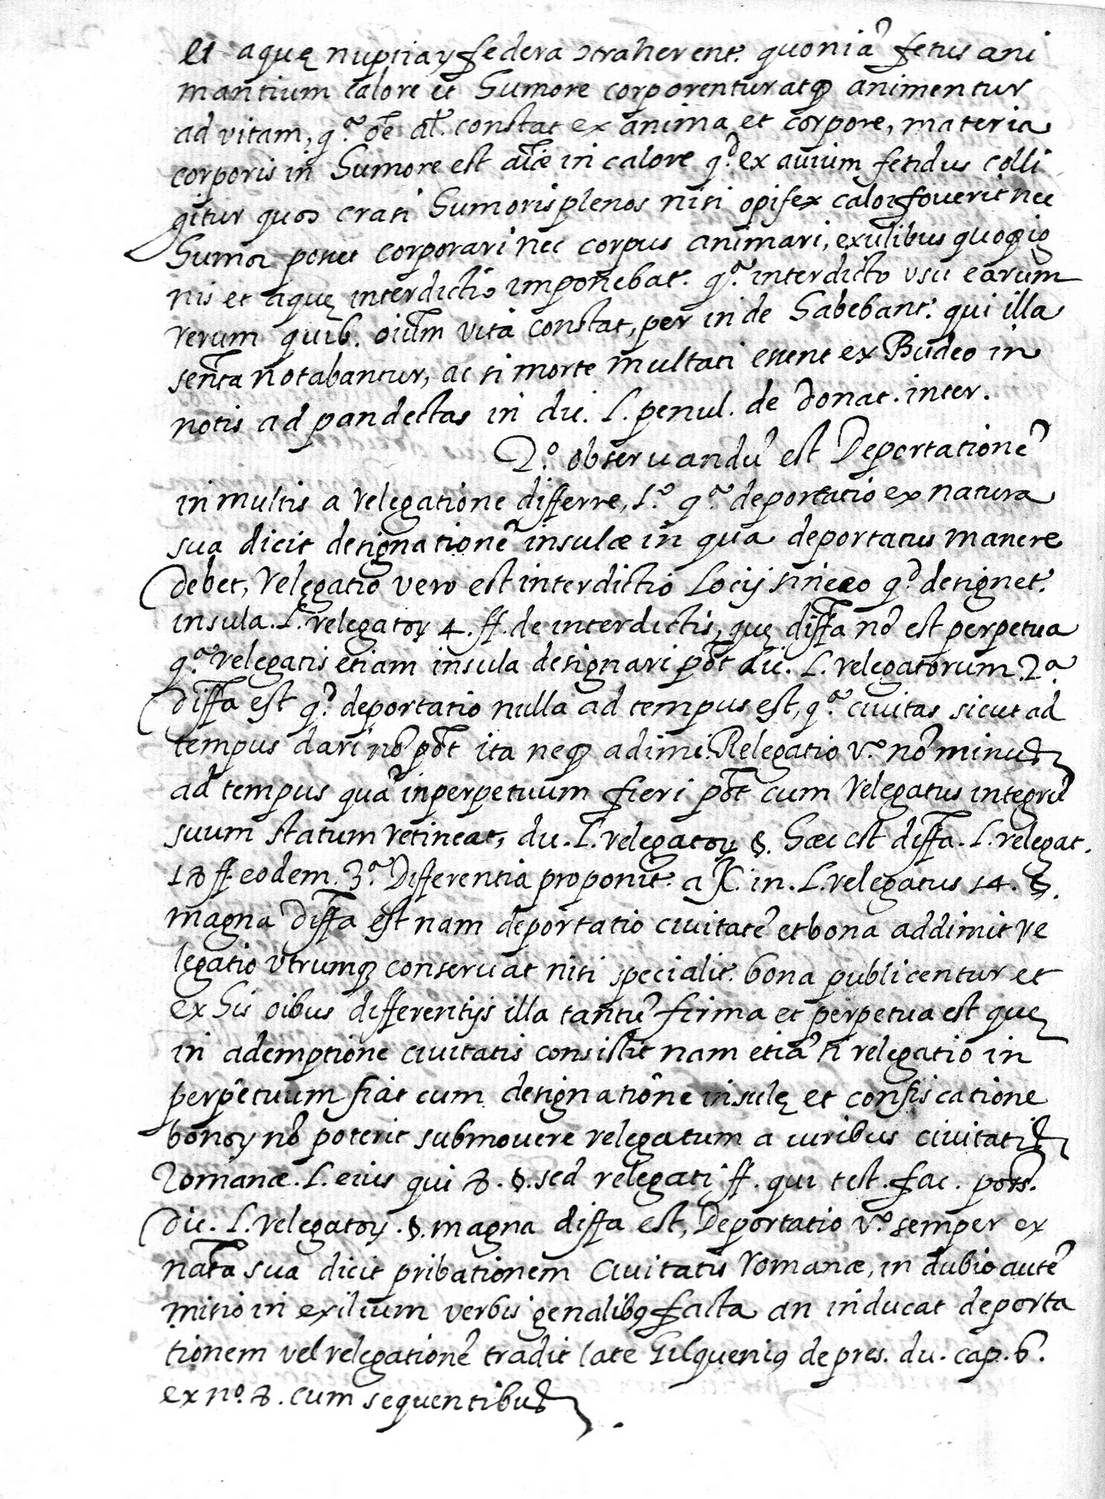 et aquę nuptiaꝝ federa ↄtraherent. quoniã fetus ani
mantium calore et humore corporentur atq̃ animentur
ad vitam, q.ª oẽ aĩl. constat ex anima et corpore, materia
corporis in humore est aĩæ in calore q.ᵈ ex auium fetidus colli
gitur quos crasi humoris plenos nisi opifex calor fouerit nec
humor potest corporari nec corpus animari, exulibus quoq̃ ig
nis et aquę interdictio imponebat. q.ª interdicto vsu earum
rerum quib. oiũm vita constat, per inde habebant. qui illa
señta notabantur, ac si morte multati essent ex Budeo in
notis ad pandectas in dic. l. penul. de donat. inter.
2.º obseruandũ est Deportationẽ
in multis a relegatione differre, 1.º q.ª deportatio ex natura
sua dicit designationẽ insulæ in qua deportatus manere
debet, relegatio vero est interdictio locij sine eo q.ᵈ designet.
insula. l. relegatoꝝ 4. ff. de interdictis, quę diffã nõ est perpetua
q.ª relegatis etiam insula designari põt dic. l. relegatorum 2.ª
diffã est q.ᵈ deportatio nulla ad tempus est, q.ª ciuitas sicut ad
tempus dari nõ põt ita neq̃ adimi. Relegatio v.º nõ minus
ad tempus quã in perpetuum fieri põt cum relegatus integrũ
suum statum retineat, dic. l. relegatoꝝ §. hæc est diffã. l. relegat.
18 ff. eodem. 3.ª Differentia proponit. a JC. in. l. relegatus 14. §.
magna diffã est nam deportatio ciuitatẽ et bona addimit re
legatio vtrumq̃ conseruat nisi specialit. bona publicentur et
ex his oibus differentijs illa tantũ firma et perpetua est quę
in ademptione ciuitatis consistit nam etiã si relegatio in
perpetuum fiat cum designatione insulę et confiscatione
bonoꝝ nõ poterit submouere relegatum a iuribus ciuitatis
Romanæ. l. eius qui 8. §. sed relegati ff. qui test. fac. poss.
dic. l. relegatoꝝ. §. magna diffa est, Deportatio v.º semper ex
natã sua dicit pribationem Ciuitatis romanæ, in dubio autẽ
missio in exilium verbis genalibꝰ facta an inducat deporta
tionem vel relegationẽ tradit late Gilqueniꝰ de pres. dic. cap. 6.
ex n.º 8. cum sequentibus.